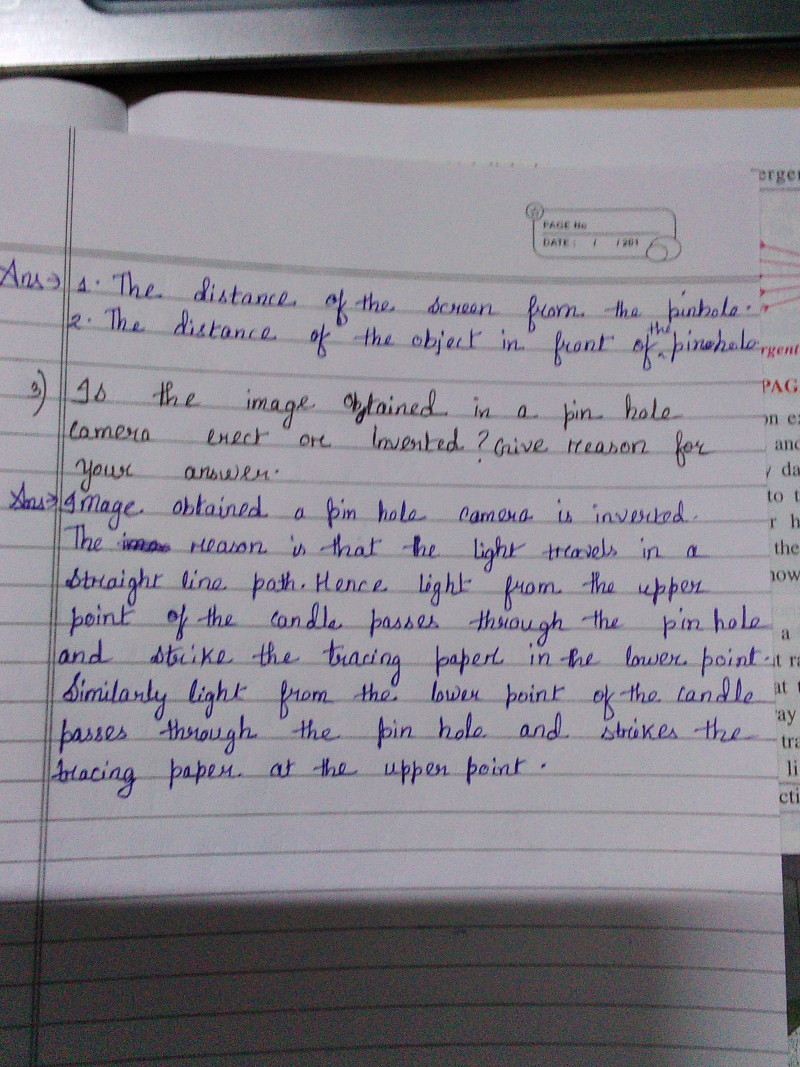 erge
PAGE No
DATE: / /201
Ans→ 1. The distance of the screen from the pinhole.
2. The distance of the object in front of the pinehole.
rgent
3) Is the image obtained in a pin hole
PAG
camera erect or Inverted? Give reason for
your answer.
Ans→ Image obtained a pin hole camera is inverted.
The reason is that the light travels in a
straight line path. Hence light from the upper
point of the candle passes through the pin hole
and strike the tracing paper in the lower point.
Similarly light from the lower point of the candle
passes through the pin hole and strikes the
tracing paper at the upper point.